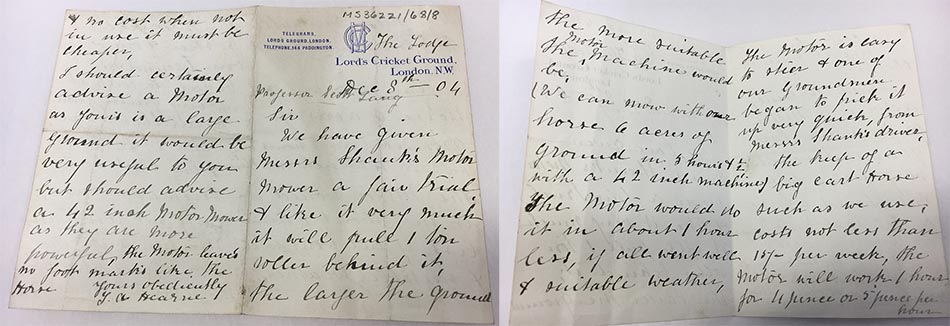 MS36221/68/8
TELEGRAMS,
LORD'S GROUND, LONDON.
TELEPHONE, 144 PADDINGTON.
The Lodge
Lord's Cricket Ground,
London. N.W.
Dec 8th - 04
Professor Scott Lang
Sir
We have given
Messrs Shanks's Motor
Mower a fair trial
& like it very much
it will pull 1 ton
roller behind it,
the larger the ground
the more suitable
the Motor Machine would
be,
(We can mow with our
horse 6 acres of
ground in 5 hours & ½
with a 42 inch machine)
The Motor would do
it in about 1 hour
less, if all went well
& suitable weather,
The Motor is easy
to stier & one of
our Groundmen
began to pick it
up very quick, from
Messrs Shanks's driver,
the keep of a
big cart Horse
such as we use,
costs not less than
15/- per week, the
Motor will work 1 hour
for 4 punce or 5 punce per
hour
& no cost when not
in use it must be
cheaper,
I should certainly
advise a Motor
as yours is a large
ground it would be
very useful to you
but I should advise
a 42 inch Motor Mower
as they are more
powerful, the Motor leaves
no foot marks like, the
Horse
Yours obediently
J A Hearne